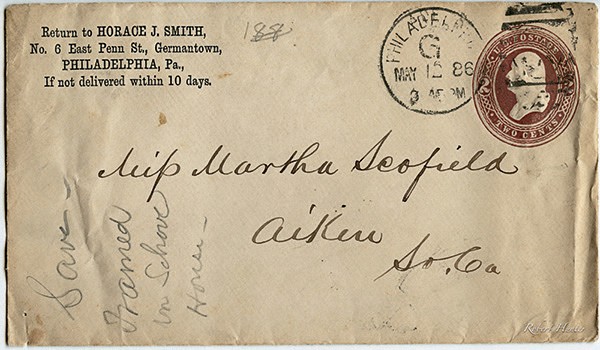 Return to HORACE J. SMITH,
No. 6 East Penn St., Germantown,
PHILADELPHIA, Pa.,
If not delivered within 10 days.
188
PHILADELPHIA
G
MAY 12 86
3 45 PM
U.S. POSTAGE
2
TWO CENTS
Miss Martha Scofield
Aiken
So. Ca
Save -
Framed
in Schove
House -